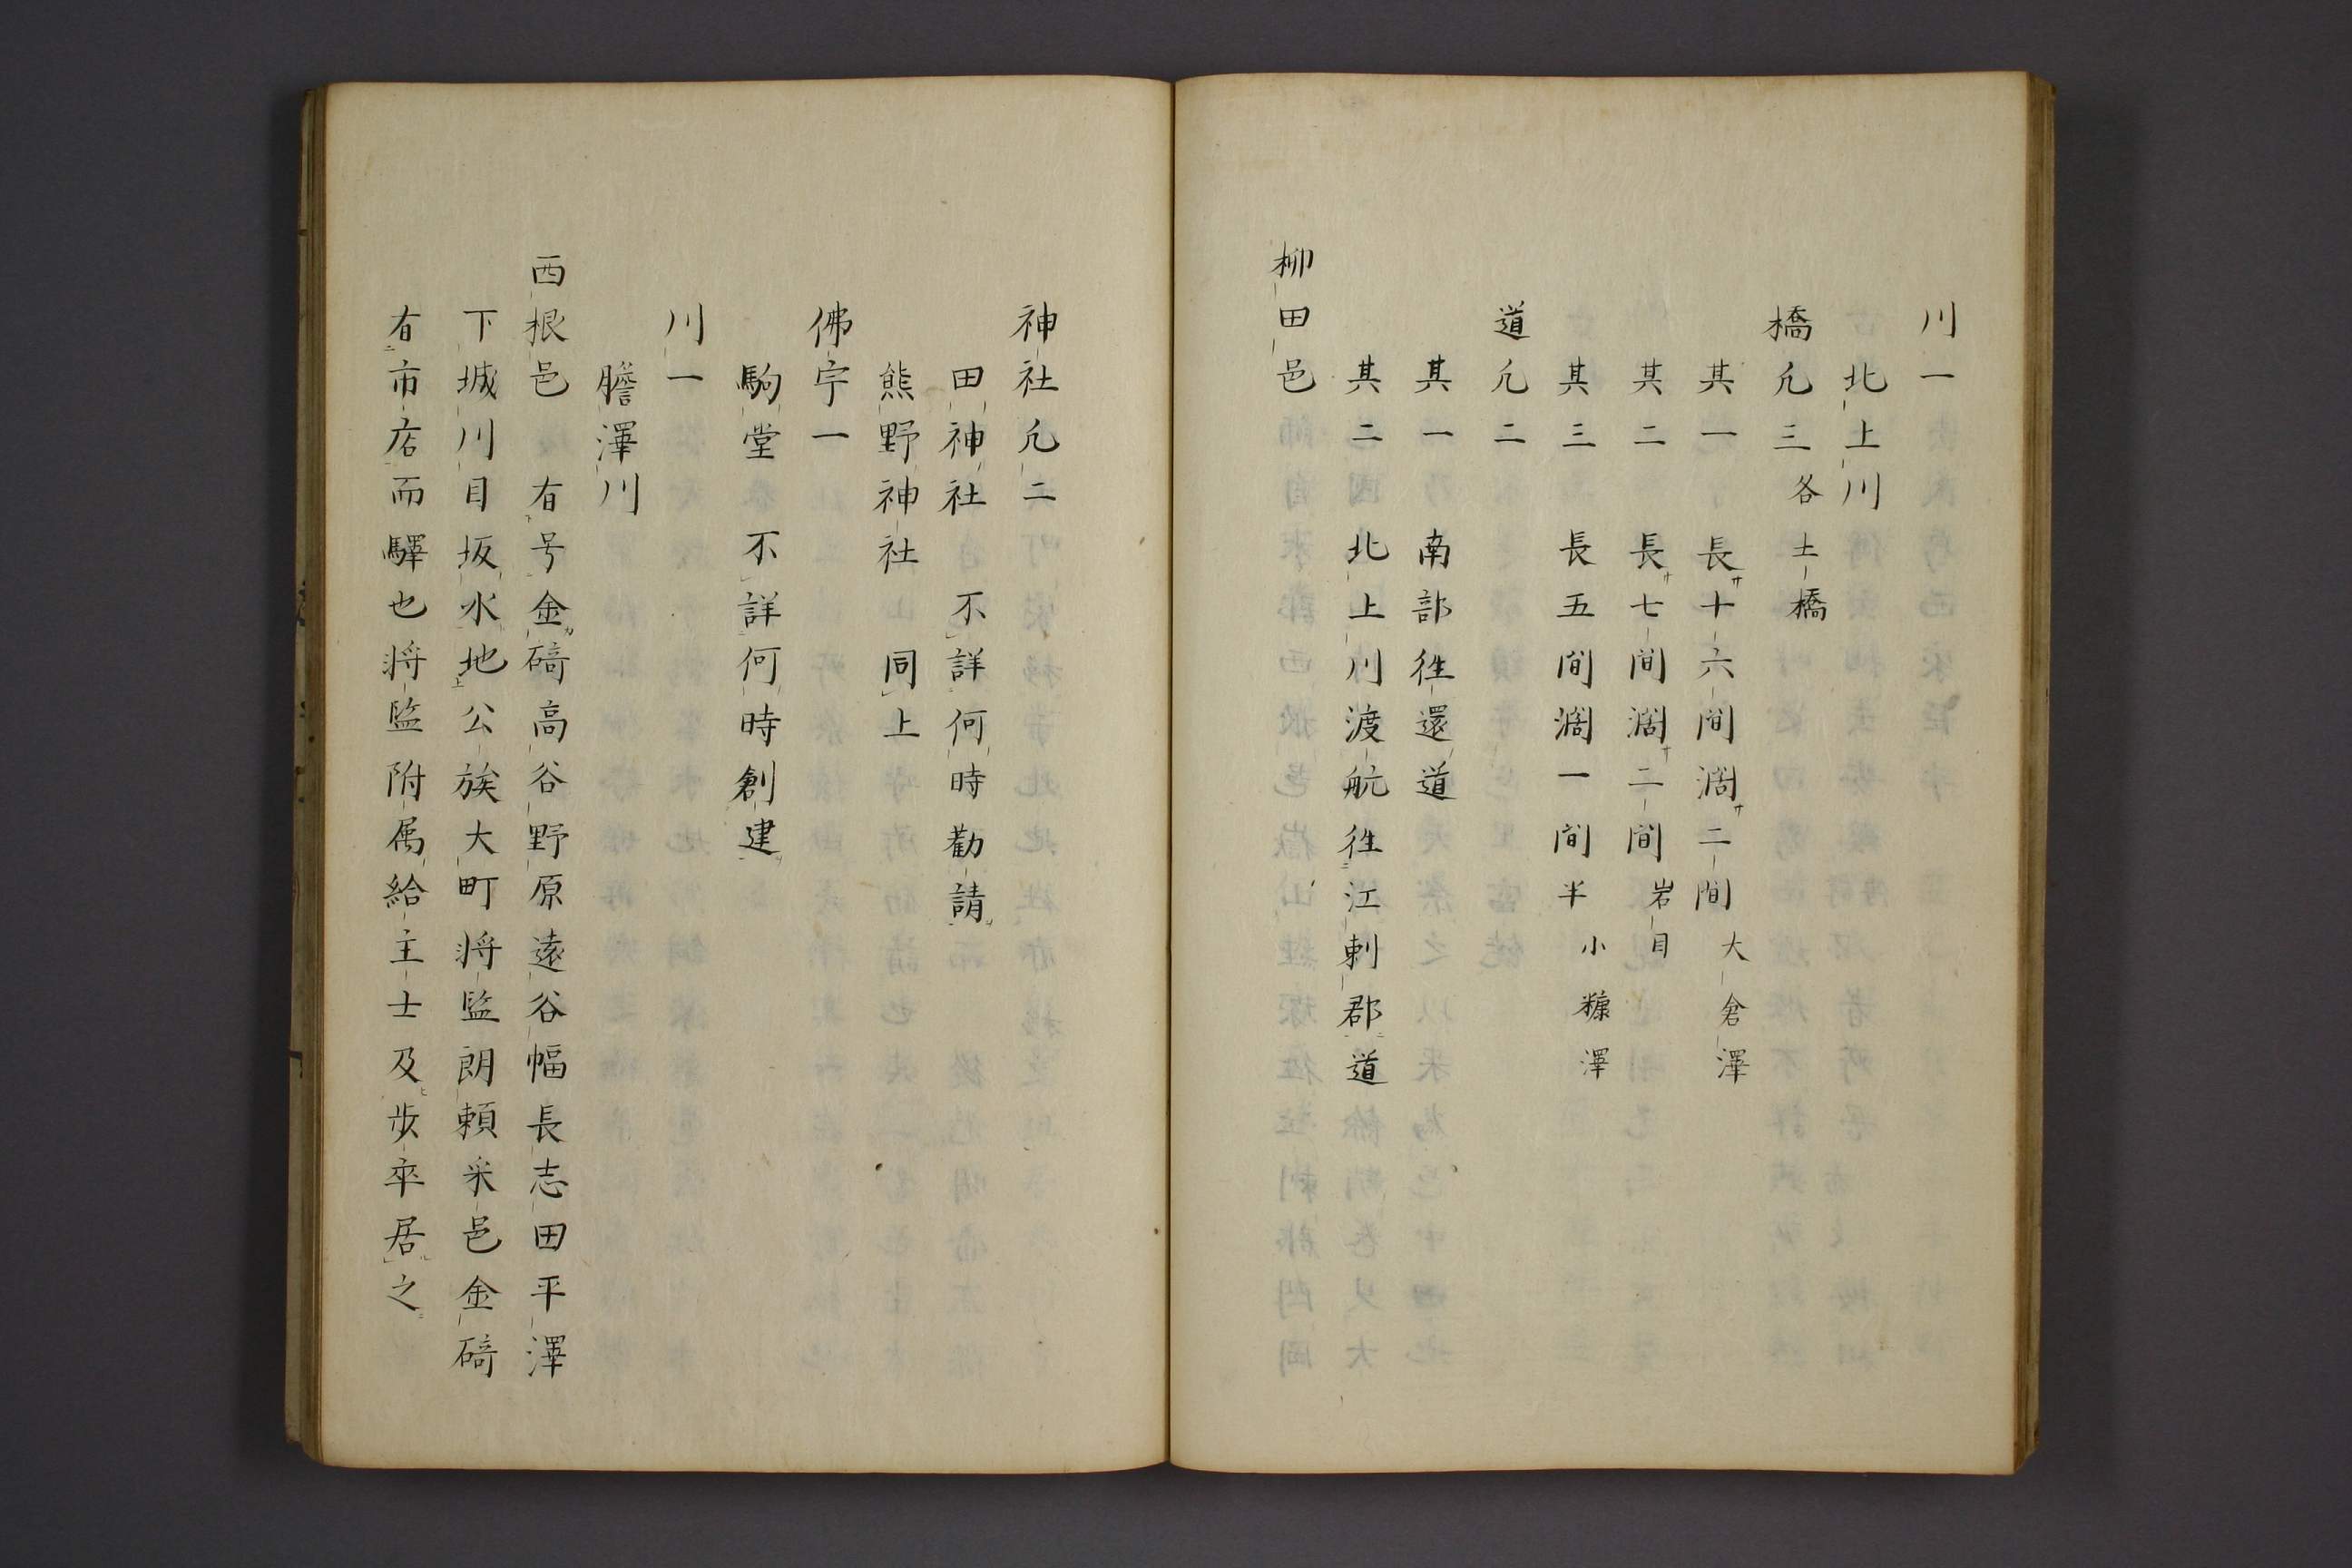 川一
北上川
橋凢三各土橋
其一 長サ十六間濶サ二間 大倉澤
其二 長サ七間濶サ二間 岩目
其三 長五間濶一間半 小糠澤
道凢二
其一 南部徃還道
其二 北上川渡航徃江刺郡道
柳田邑
神社凢二
田神社 不詳何時勸請
熊野神社 同上
佛宇一
駒堂 不詳何時創建
川一
膽澤川
西根邑 有号金碕高谷野原遠谷幅長志田平澤
下城川目坂水地公族大町将監朗頼采邑金碕
有市店而驛也将監附属給主士及歩卒居之